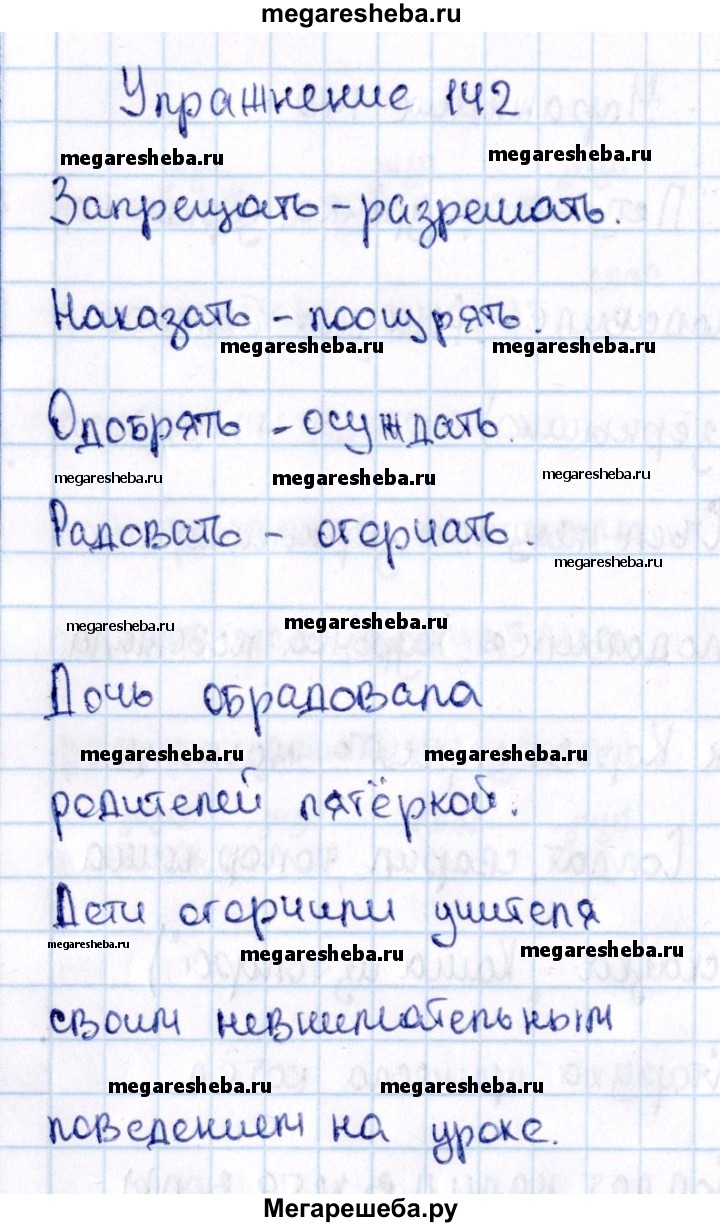 megaresheba.ru
Упражнение 142
megaresheba.ru megaresheba.ru
Запрещать - разрешать.
Наказать - поощрять.
megaresheba.ru megaresheba.ru
Одобрять - осуждать.
megaresheba.ru megaresheba.ru megaresheba.ru
Радовать - огорчать.
megaresheba.ru
megaresheba.ru megaresheba.ru
Дочь обрадовала
megaresheba.ru megaresheba.ru
родителей пятёркой.
Дети огорчили учителя
megaresheba.ru megaresheba.ru megaresheba.ru
своим невнимательным
megaresheba.ru megaresheba.ru
поведением на уроке.
Мегарешеба.ру